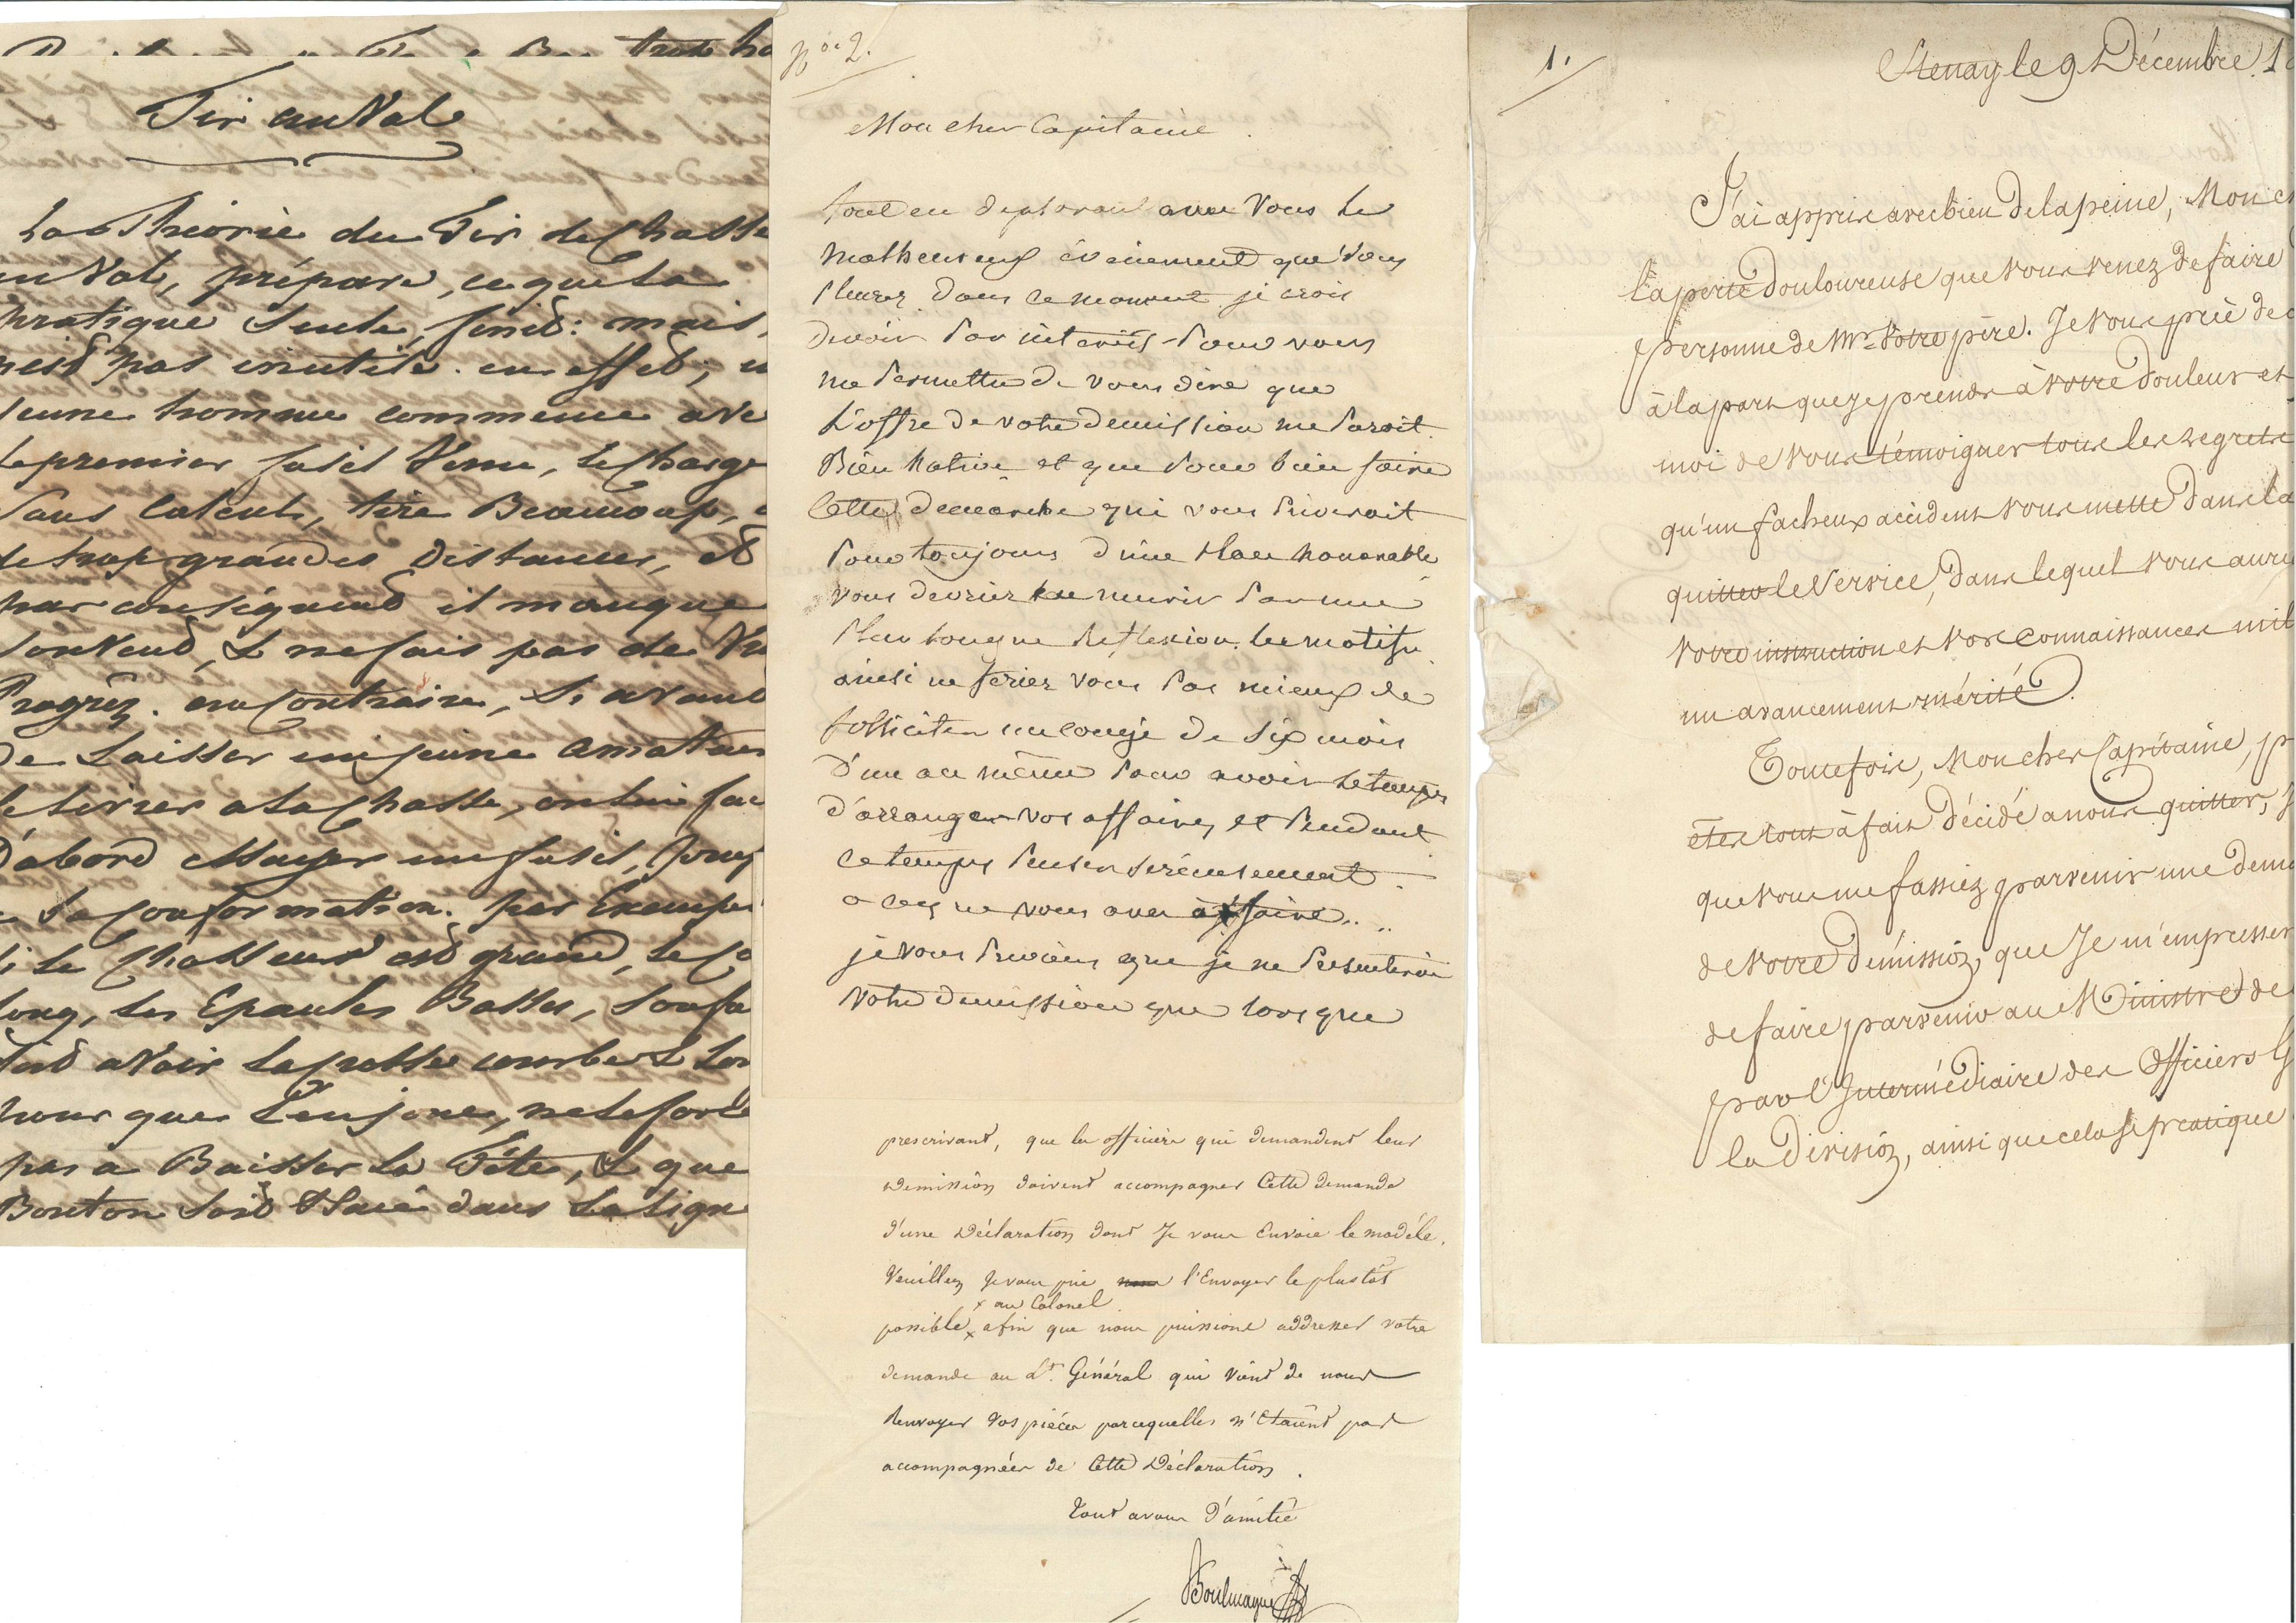 Tir au Vol
La Théorie du Tir de Chasse
au Vol, prépare, ce que la
pratique seule, finit: mais,
n'est pas inutile. en effet; u
jeune homme commence ave
le premier fusil Venu, le charge
sans calculs, tire Beaucoup,
de trop grandes Distances, et
par conséquend il manque
souvend, & ne fais pas de
Progrèz. au Contraire, Si avant
de Laisser un jeune Amateur
se livrer a la Chasse, on lui fai
D'abord essayer un fusil,
a sa conformation. par Exemple
si le Chasseur est grand, le Co
long, les Epaules Basses, son fu
doid avoir la crosse courbe & lon
pour que l'en joue, ne le force
pas a Baisser la Tête, & que
Bouton soid Placé dans la lign
N° 2.
Mon cher Capitaine
tout en déplorant avec vous le
malheureux évènement que vous
pleurez dans ce moment je crois
devoir par intérêt pour vous
me permettre de vous dire que
L'offre de votre demission me paroit
Bien hative et que pour bien faire
Cette demarche qui vous priveroit
pour toujours d'une place honorable
vous devriez en murir par une
plus longue Reflexion les motifs
ainsi ne feriez vous pas mieux de
solliciter un congé de six mois
d'un an même pour avoir le temps
d'arranger vos affaires et pendant
ce temps penser serieusement
a ce que vous avez à faire..
je vous previens que je ne presenterai
votre demission que lors que
prescrivant, que les officiers qui demandent leur
Demission doivent accompagner Cette demande
d'une Déclaration dont Je vous Envoie le modéle.
Veuillez Je vous prie l'Envoyer le plustôt
x au Colonel
possible x afin que nous puissions addresser votre
demande au Lt. Général qui vient de nous
Renvoyer vos pièces parcequelles n'étaient pas
accompagnées de Cette Déclaration.
Tout a vous d'amitié
Boulmague
1.
Stenay le 9 Décembre 1
J'ai appris avec bien de la peine, Mon c
la perte douloureuse que vous venez de faire
personne de Mr. Votre père. Je vous prie de c
à la part que je prends à votre douleur et
moi de vous témoigner tous les regrets
qu'un facheux accident vous mette dans la
quitter le Service, dans lequel vous aurie
votre instruction et vos connaissances mil
un avancement mérité.
Toutefois, Mon cher Capitaine, p
êtes tout à fait décidé a nous quitter, j
que vous me fassiez parvenir une dema
de votre Démission, que Je m'empresser
de faire parvenir au Ministre de
par l'Intermédiaire des Officiers G
la Division, ainsi que cela se pratique